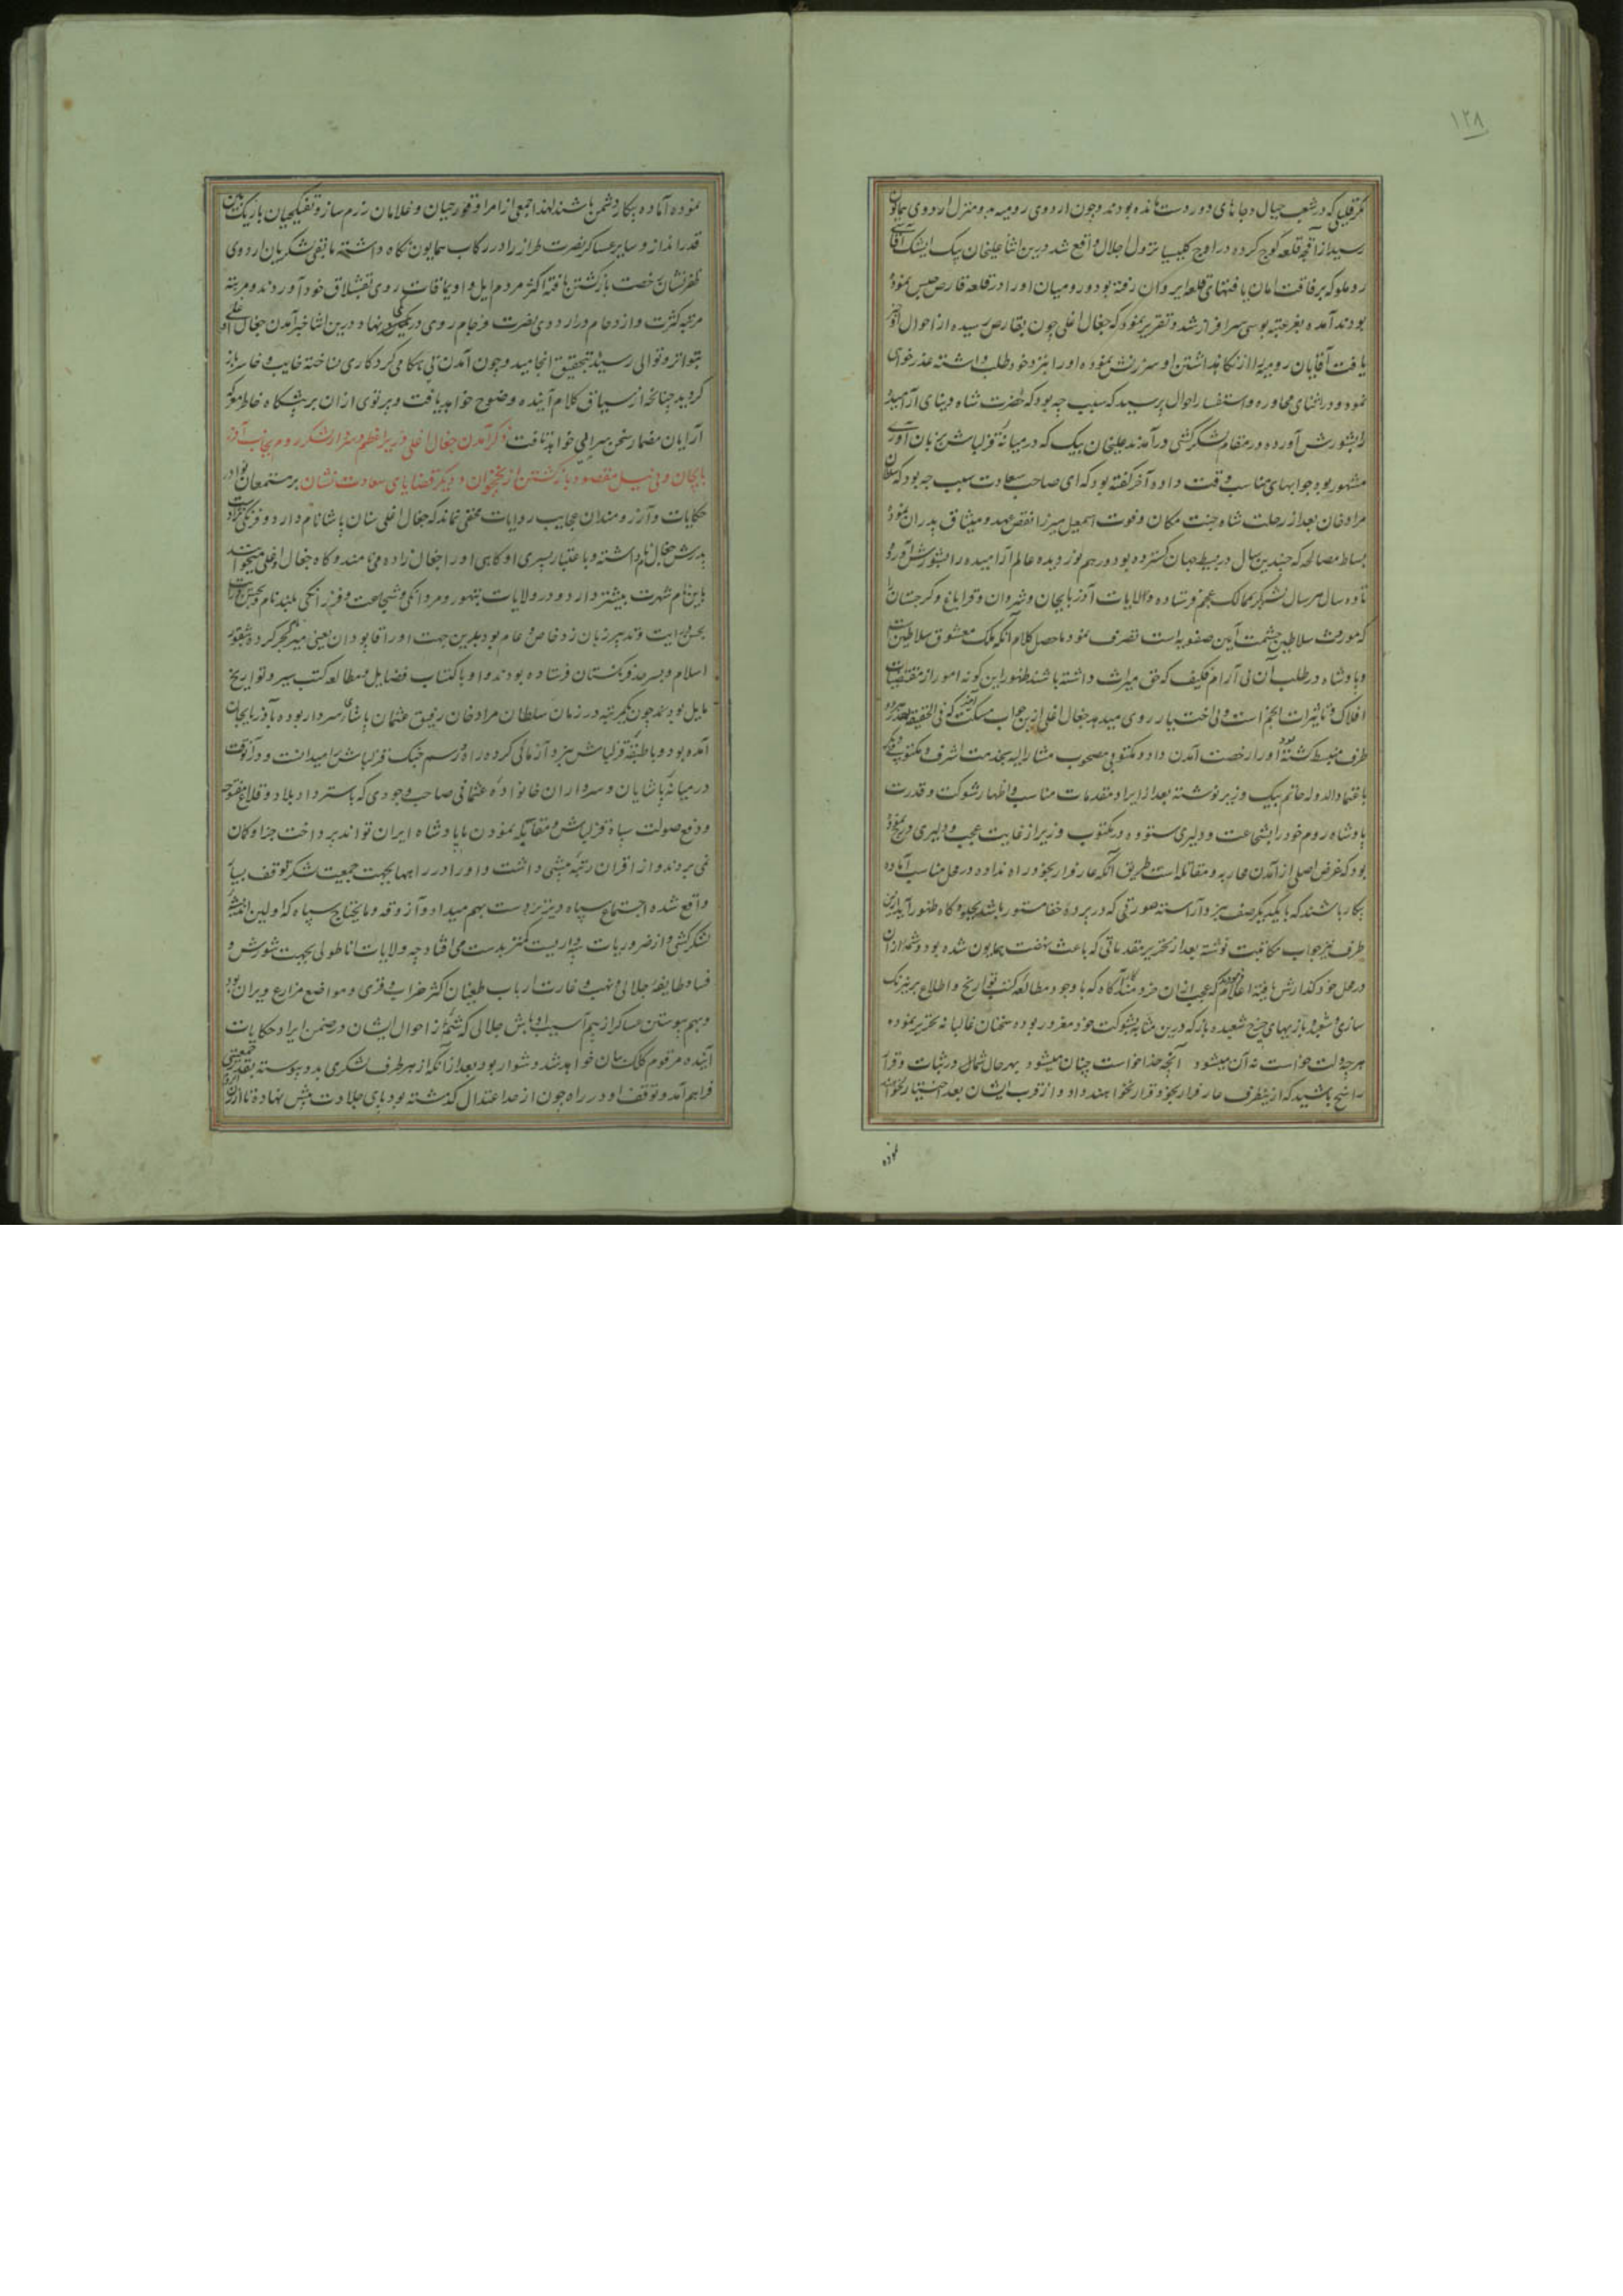 ۱۲۸
مگر قلیلی که در شعب جبال و جاهای دور دست مانده بودند و چون اردوی رومیه بدو منزل اردوی همایون
رسید از آقچه قلعه کوچ کرده در اوچ کلیسیا نزول اجلال واقع شد درین اثنا علیخان بیک ایشک آقاسی
روملو که برفاقت امان یافتهای قلعه ایروان رفته بود و رومیان او را در قلعه قارص حبس نموده
بودند آمده بعز عتبه بوسی سرافراز شد و تقریر نمود که جغال اغلی چون بقارص رسیده از احوال او خبر
یافت آقایان رومیه را از نگاهداشتن او سرزنش نموده او را بنزد خود طلب داشته عذرخواهی
نموده و در اثنای محاوره و استفسار احوال پرسید که سبب چه بود که حضرت شاه دنیای آرمیده
را بشورش آورده در مقام لشکرکشی درآمدند علیخان بیک که در میانه قزلباش بزبان آوری
مشهور بود جوابهای مناسب وقت داده آخر گفته بود که ای صاحب سعادت سبب چه بود که سلطان
مراد خان بعد از رحلت شاه جنت مکان و فوت اسمعیل میرزا نقض عهد و میثاق پدران نموده
بساط مصالحه که چندین سال در بسیط جهان گسترده بود در هم نوردیده عالم آرامیده را بشورش آورد
تا ده سال هر سال لشکر بممالک عجم فرستاده ولایات آذربایجان و شروان و قراباغ و گرجستان را
که مورث سلاطین حشمت آیین صفویه است تصرف نمود ماحصل کلام آنکه ملک معشوق سلاطین است
و پادشاه در طلب آن بی آرام فکیف که حق میراث داشته باشند ظهور این گونه امور از مقتضیات
افلاک و تاثیرات انجم است و بی اختیار روی میدهد جغال اغلی ازین جواب مسکت آمیز که فی الحقیقه
طرف منبسط گشته بود او را رخصت آمدن داد و مکتوبی مصحوب مشار الیه بخدمت اشرف و مکتوبی دیگر
باعتماد الدوله حاتم بیک وزیر نوشته بعد از ایراد مقدمات مناسب و اظهار شوکت و قدرت
پادشاه روم خود را بشجاعت و دلیری ستوده در مکتوب وزیر از غایت عجب و دلیری درج نموده
بود که غرض اصلی از آمدن محاربه و مقاتله است طریق آنکه عار فرار بخود راه نداده در محل مناسب آماده
پیکار باشند که با یکدیگر صف نبرد آراسته صورتی که در پرده خفا مستور باشد بجلوه گاه ظهور آید ازین
طرف نیز جواب مکاتبت نوشته بعد از تحریر مقدماتی که باعث نهضت همایون شده بود و شمه از آن
در محل خود گذارش یافته اعلام فرمودند که عجب از آن خردمند کارآگاه که با وجود مطالعه کتب تواریخ و اطلاع بر نیرنگ
سازی و شعبده بازیهای چرخ شعبده باز که درین مثابه بشوکت خود مغرور بوده سخنان غالبانه تحریر نموده
هر چه دولت خواست نه آن میشود آنچه خدا خواست چنان میشود بهر حال شما در ثبات و قرار
راسخ باشید که ازینطرف عار فرار بخود قرار نخواهند داد و از قرب ایشان بعد اختیار نخواهند
نموده
نموده آماده پیکار دشمن باشند لهذا جمعی از امرا و قورچیان و غلامان رزم ساز و تفنگچیان باریک بین
قدرانداز و سایر عساکر نصرت طراز را در رکاب همایون نگاه داشته مابقی لشکریان اردوی
ظفرنشان رخصت بازگشتن یافته اکثر مردم ایل و اویماقات روی بقشلاق خود آوردند و مرتبه
مرتبه کثرت و ازدحام در اردوی نصرت فرجام روی در کمی نهاد درین اثنا خبر آمدن جغال اغلی
بتواتر و توالی رسید بتحقیق انجامید و چون آمدن بی هنگام کرد کاری نساخته خایب و خاسر باز
گردید چنانچه از سیاق کلام آینده وضوح خواهد یافت و پرتوی از آن بر پیشگاه خاطر معرکه
آرایان مضمار سخن سرایی خواهد تافت ذکر آمدن جغال اغلی وزیر اعظم و سردار لشکر روم بجانب آذر
بایجان و بی نیل مقصود بازگشتن از نخجوان و دیگر قضایای سعادت نشان بر مستمعان نوادر
حکایات و آرزومندان عجایب روایات مخفی نماند که جغال اغلی سنان پاشا نام دارد و فرنگی نژاد است
پدرش جغال نام داشته و باعتبار پسری او گاهی او را جغال زاده می نامند و گاه جغال اغلی میخوانند
باین نام شهرت بیشتر دارد و در ولایات بتهور و مردانگی و شجاعت و فرزانگی بلند نام و بحسن رای
بحسن درایت و تدبیر زبان زد خاص و عام بود بدین جهت او را قاپودان یعنی میر بحر کرده بثغور
اسلام و سرحد فرنگستان فرستاده بودند و او باکتساب فضایل و مطالعه کتب سیر و تواریخ
مایل بود و چون یکمرتبه در زمان سلطان مراد خان رفیق عثمان پاشای سردار بوده بآذربایجان
آمده بود و با طبقه قزلباش نبرد آزمائی کرده راه و رسم جنگ قزلباش را میدانست و در آنوقت
در میانه پاشایان و سرداران خانواده عثمانی صاحب وجودی که باسترداد بلاد و قلاع مفتوحه
و دفع صولت سپاه قزلباش و مقاتله نمودن با پادشاه ایران تواند پرداخت جز او گمان
نمی بردند و از اقران رتبه پیشی داشت و او را در راهها بجهت جمعیت لشکر توقف بسیار
واقع شده اجتماع سپاه دیر بدست بهم میداد و آزوقه و مایحتاج سپاه که اولین اندیشه
لشکرکشی و از ضروریات است کمتر بدست می افتاد چه ولایات اناطولی بجهت شورش و
فساد طایفه جلالی و نهب و غارت ارباب طغیان اکثر خراب و قری و مواضع و مزارع ویران بود
و بهم پیوستن عساکر از بیم آسیب اوباش جلالی که شمه از احوال ایشان در ضمن ایراد حکایات
آینده مرقوم کلک بیان خواهد شد دشوار بود بعد از آنکه از هر طرف لشکری بدو پیوسته جمعیتی
فراهم آمد و توقف او در راه چون از حد اعتدال گذشته بود پای جلادت پیش نهاده تا ارزن